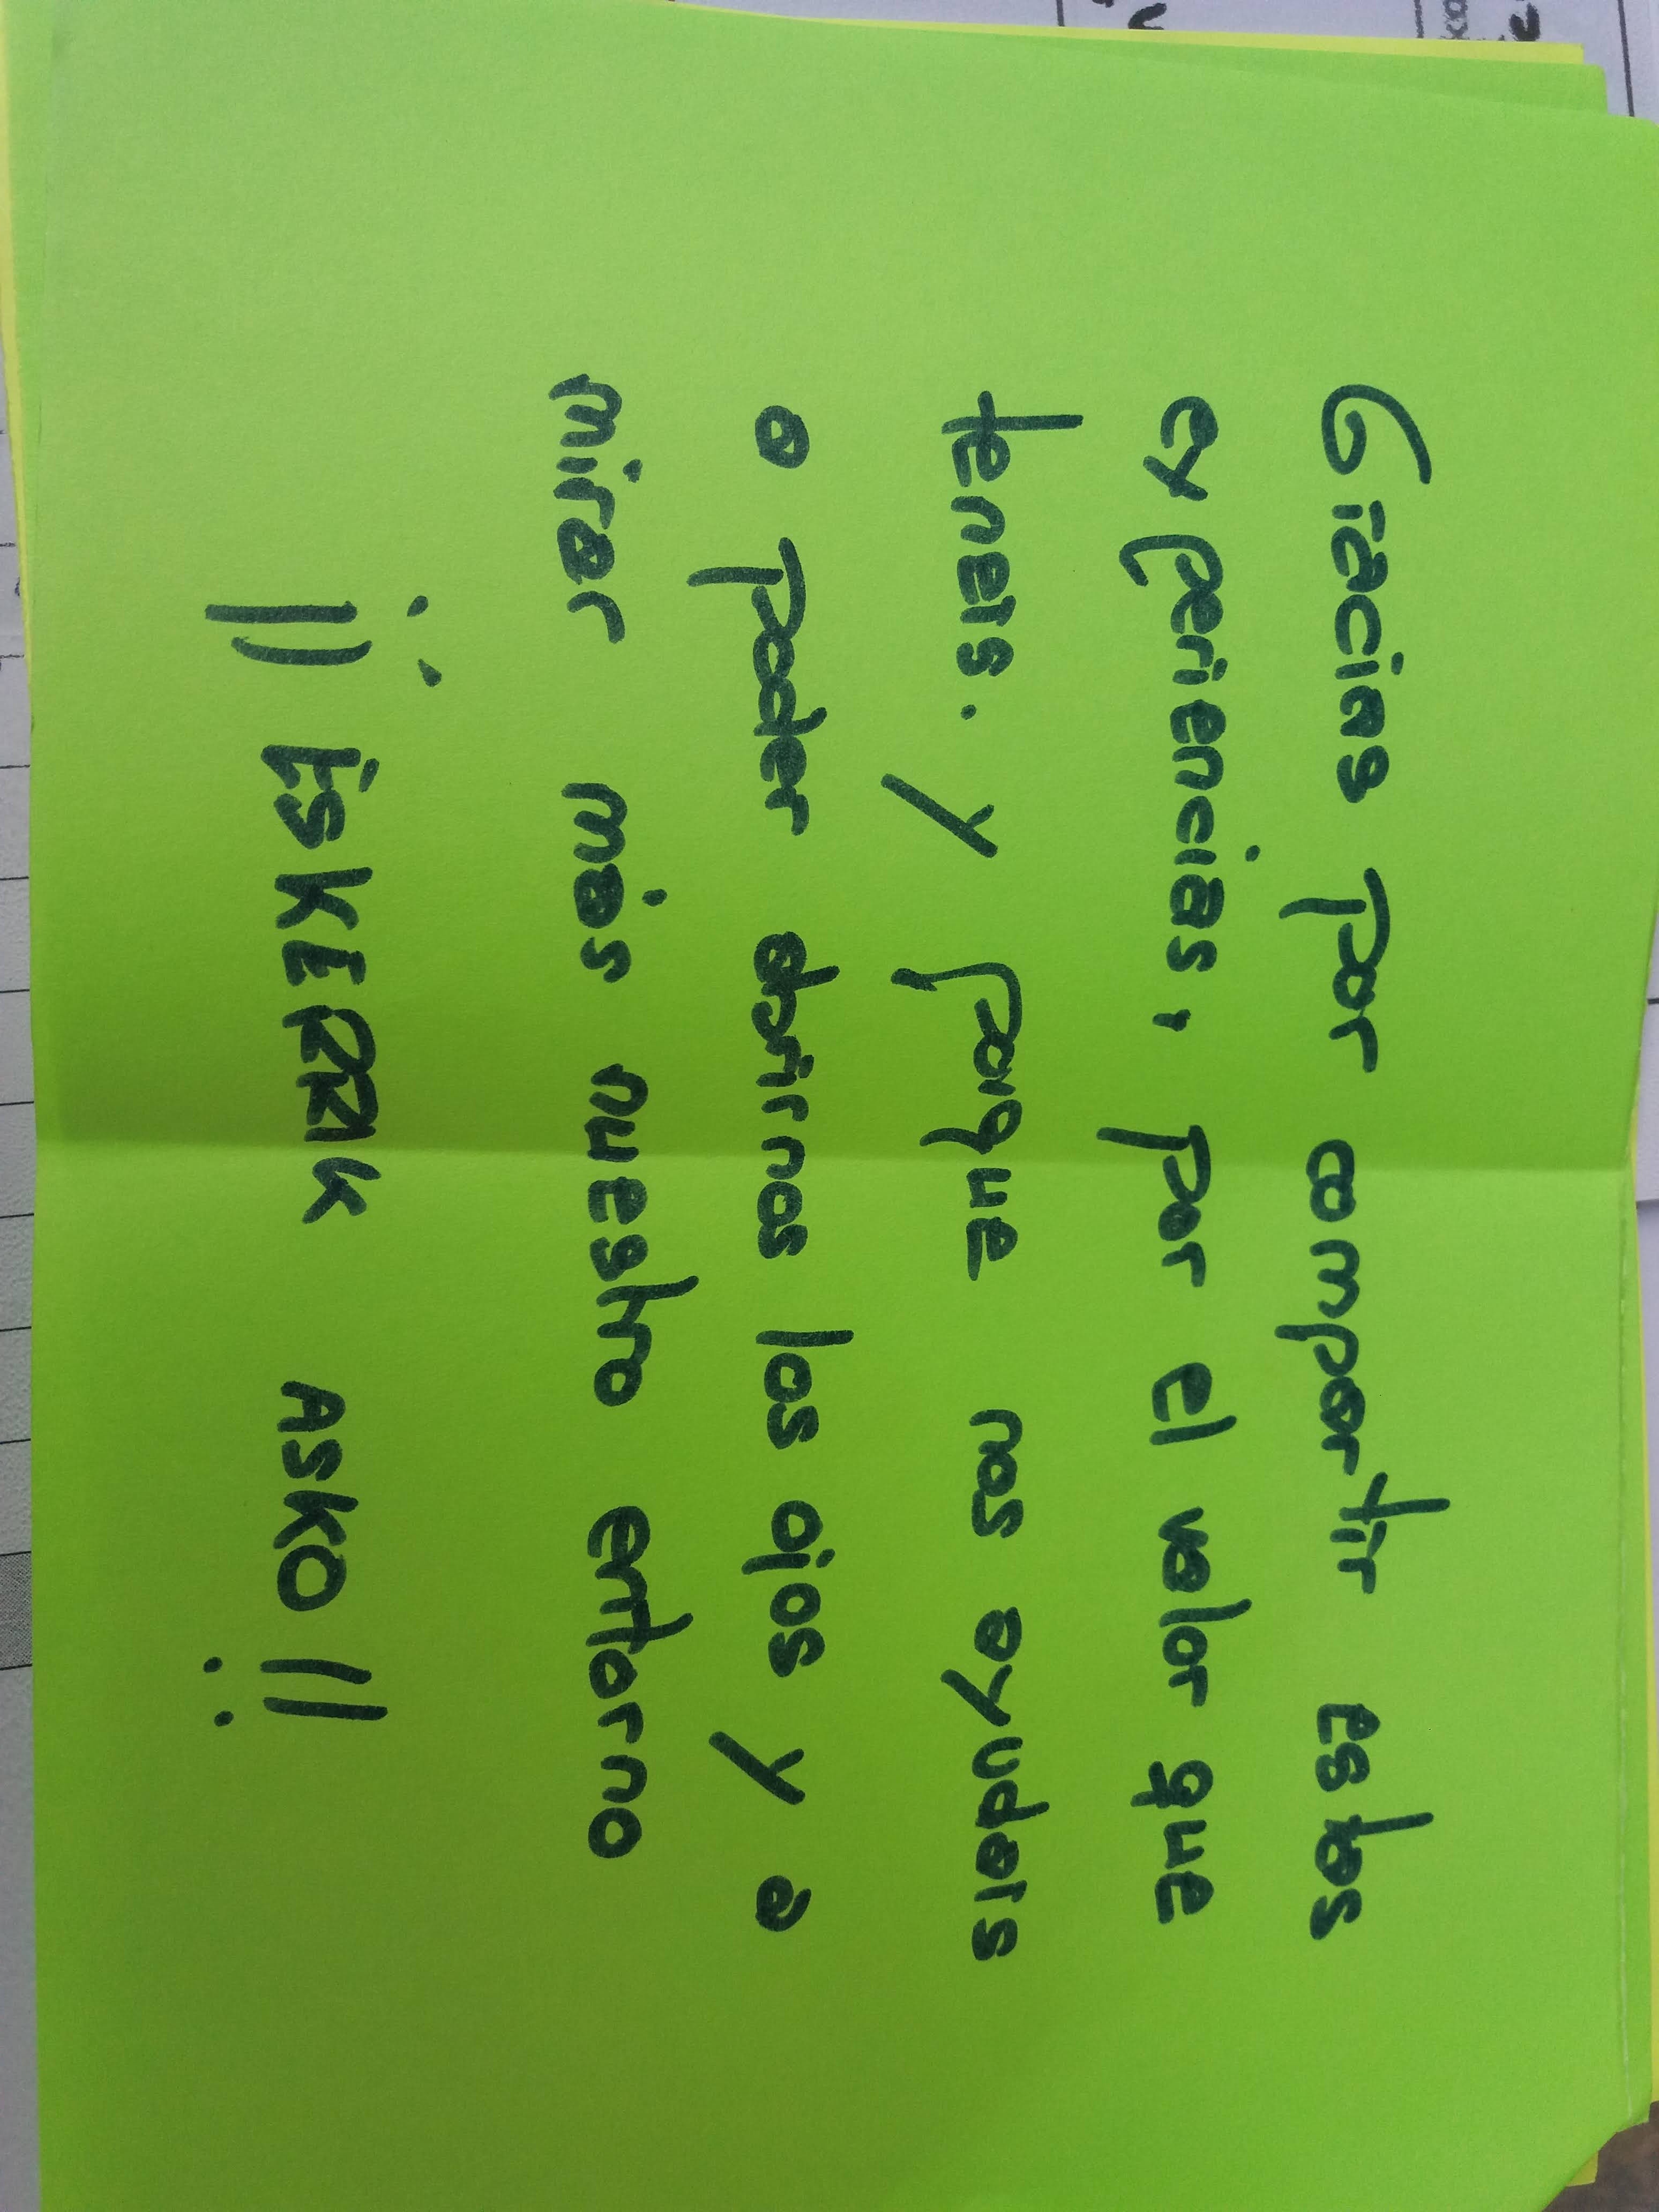 Gracias por compartir estas
experiencias, por el valor que
teneis. y porque nos ayudais
a poder abrirnos los ojos y a
mirar más nuestro entorno
¡¡ ESKERRIK ASKO !!